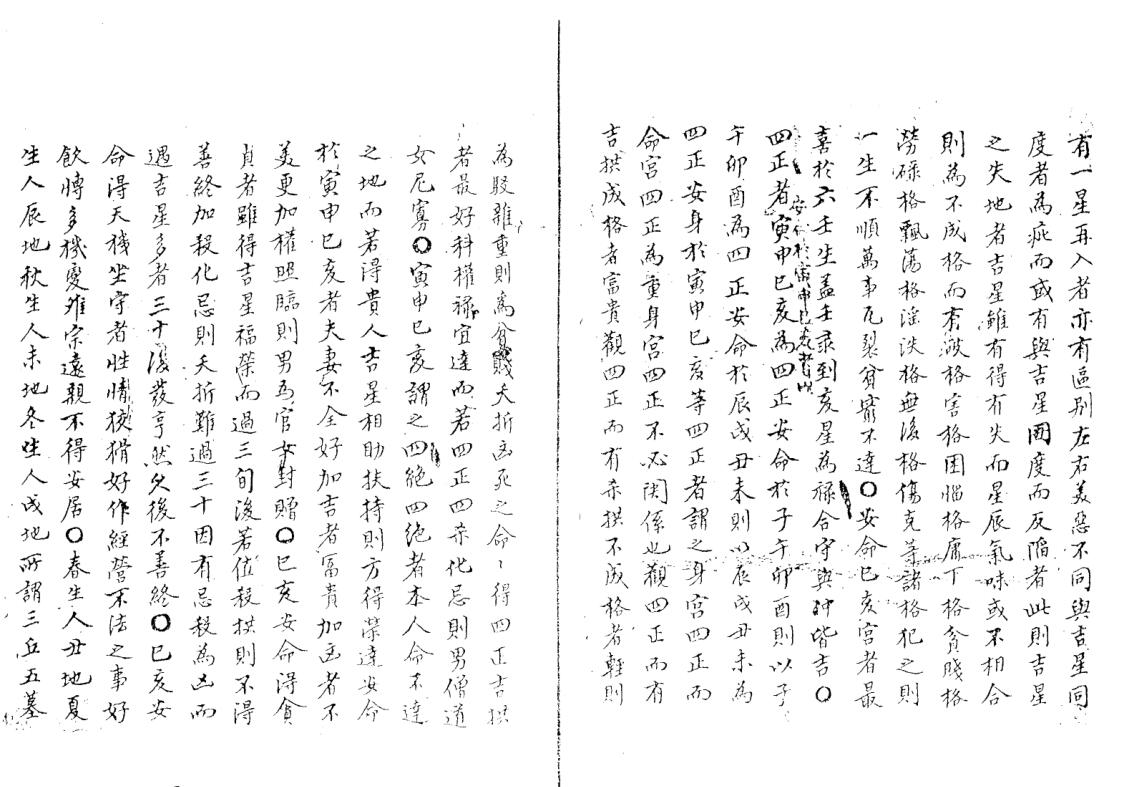 有一星再入者亦有區别左右美惡不同與吉星同
度者為庇而或有與吉星同度而反陷者此則吉星
之失地者吉星雖有得有失而星辰氣味或不相合
則為不成格而有破格害格困惱格庸下格貪賤格
勞碌格飄蕩格淫泆格無後格傷克等諸格犯之則
一生不順萬事瓦裂貧窮不達〇安命巳亥宮者最
喜於六壬生盖壬录到亥星為禄合守與冲皆吉〇
四正者寅申巳亥為四正安命於子午卯酉則以子
安命於寅申巳亥者以
午卯酉為四正安命於辰戌丑未則以辰戌丑未為
四正安身於寅申巳亥等四正者謂之身宮四正而
命宮四正為重身宮四正不必関係也觀四正而有
吉拱成格者富貴觀四正而有杀拱不成格者輕則
為駁雜重則為貧賤夭折凶死之命〻得四正吉拱
者最好科權禄宜達而若四正四杀化忌則男僧道
女尼寡〇寅申巳亥謂之四絶四絶者本人命不達
之地而若得貴人吉星相助扶持則方得榮達安命
於寅申巳亥者夫妻不全好加吉者富貴加凶者不
美更加權照臨則男為官女封贈〇巳亥安命得貪
貞者雖得吉星福榮而過三旬後若值殺拱則不得
善終加殺化忌則夭折難過三十因有忌殺為凶而
遇吉星多者三十後發亨然久後不善終〇巳亥安
命得天機坐守者性情狡猾好作經營不法之事好
飲博多機變难宗遠親不得安居〇春生人丑地夏
生人辰地秋生人未地冬生人戌地所謂三丘五墓